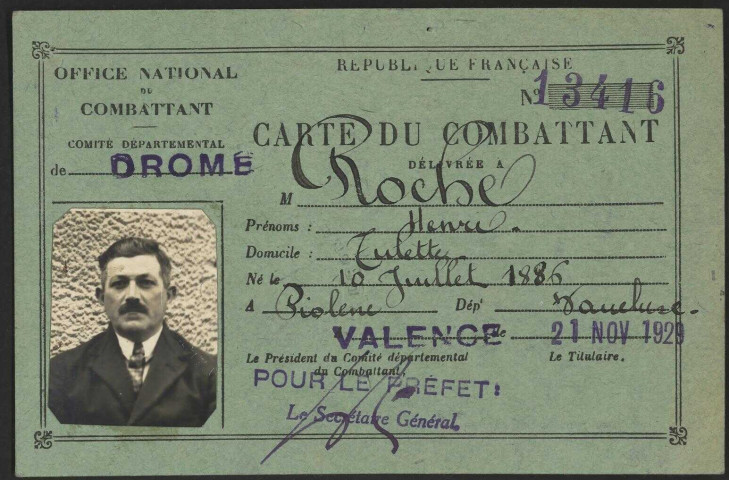 OFFICE NATIONAL
DU
COMBATTANT
COMITÉ DÉPARTEMENTAL
de DROME
RÉPUBLIQUE FRANÇAISE
No 13416
CARTE DU COMBATTANT
DÉLIVRÉE A
M Roche
Prénoms : Henri.
Domicile : Tulette
Né le 10 Juillet 1886
A Piolenc Dépt Vaucluse.
VALENCE le 21 NOV 1929
Le Président du Comité départemental
du Combattant,
Le Titulaire.
POUR LE PRÉFET:
Le Secrétaire Général,